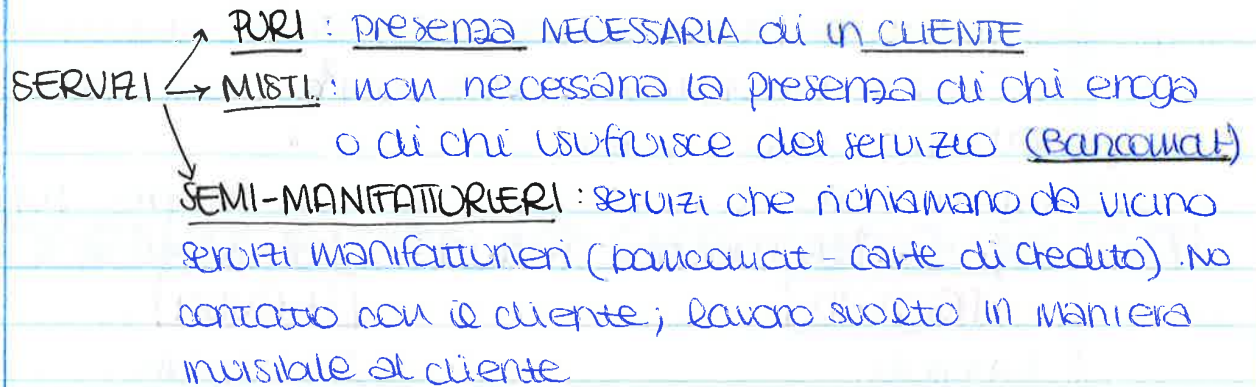 PURI : presenza NECESSARIA di un CLIENTE
SERVIZI
MISTI : non necessaria la presenza di chi eroga
o di chi usufruisce del servizio (Bancomat)
SEMI-MANIFATTURIERI : servizi che richiamano da vicino
servizi manifatturieri (bancomat - carte di credito). No
contatto con il cliente; lavoro svolto in maniera
invisibile al cliente